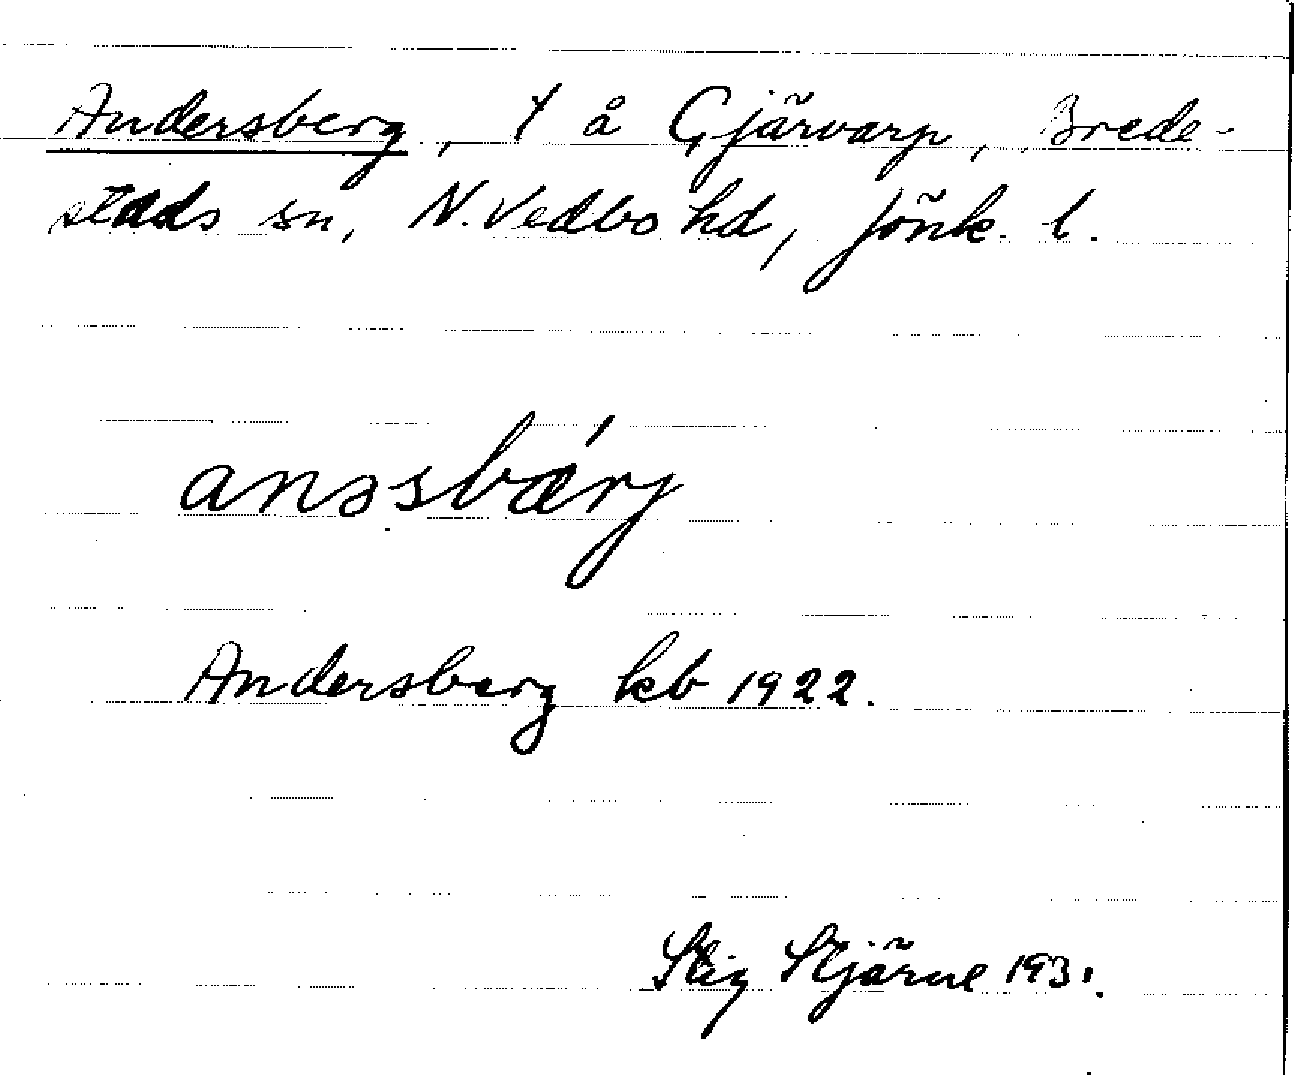 Andersberg, t å Gjärvarp, Brede-
stads sn, N. Vedbo hd, Jönk. l.
anəsbærj
Andersberg kb 1922.
Stig Stjärne 1931.